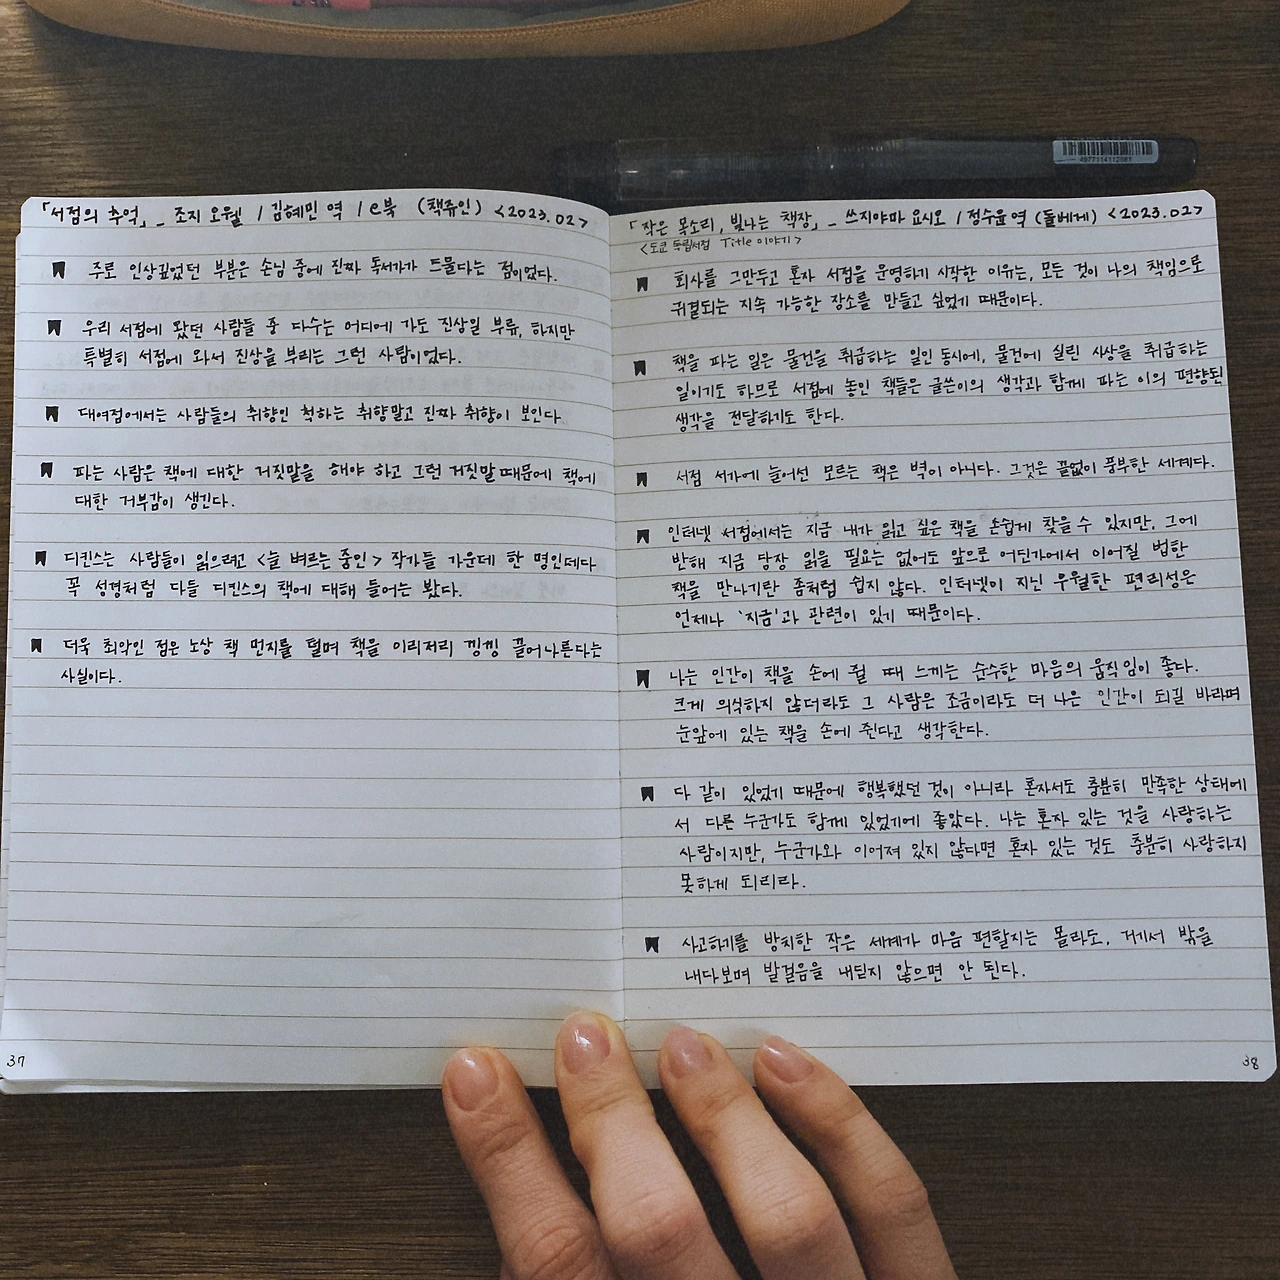 「서점의 추억」_ 조지 오웰 / 김혜민 역 / e북 (책쥬인) <2023.02>
주로 인상깊었던 부분은 손님 중에 진짜 독서가가 드물다는 점이었다.
우리 서점에 왔던 사람들 중 다수는 어디에 가도 진상일 부류, 하지만
특별히 서점에 와서 진상을 부리는 그런 사람이었다.
대여점에서는 사람들의 취향인 척하는 취향말고 진짜 취향이 보인다.
파는 사람은 책에 대한 거짓말을 해야 하고 그런 거짓말 때문에 책에
대한 거부감이 생긴다.
디킨스는 사람들이 읽으려고 <늘 벼르는 중인> 작가들 가운데 한 명인데다
꼭 성경처럼 다들 디킨스의 책에 대해 들어는 봤다.
더욱 최악인 점은 노상 책 먼지를 털며 책을 이리저리 낑낑 끌어나른다는
사실이다.
37
「작은 목소리, 빛나는 책장」_ 쓰지야마 요시오 / 정수윤 역 (돌베게) <2023.02>
<도쿄 독립서점 Title 이야기>
회사를 그만두고 혼자 서점을 운영하기 시작한 이유는, 모든 것이 나의 책임으로
귀결되는 지속 가능한 장소를 만들고 싶었기 때문이다.
책을 파는 일은 물건을 취급하는 일인 동시에, 물건에 실린 사상을 취급하는
일이기도 하므로 서점에 놓인 책들은 글쓴이의 생각과 함께 파는 이의 편향된
생각을 전달하기도 한다.
서점 서가에 늘어선 모르는 책은 벽이 아니다. 그것은 끝없이 풍부한 세계다.
인터넷 서점에서는 지금 내가 읽고 싶은 책을 손쉽게 찾을 수 있지만, 그에
반해 지금 당장 읽을 필요는 없어도 앞으로 어딘가에서 이어질 법한
책을 만나기란 좀처럼 쉽지 않다. 인터넷이 지닌 우월한 편리성은
언제나 '지금'과 관련이 있기 때문이다.
나는 인간이 책을 손에 쥘 때 느끼는 순수한 마음의 움직임이 좋다.
크게 의식하지 않더라도 그 사람은 조금이라도 더 나은 인간이 되길 바라며
눈앞에 있는 책을 손에 쥔다고 생각한다.
다 같이 있었기 때문에 행복했던 것이 아니라 혼자서도 충분히 만족한 상태에
서 다른 누군가도 함께 있었기에 좋았다. 나는 혼자 있는 것을 사랑하는
사람이지만, 누군가와 이어져 있지 않다면 혼자 있는 것도 충분히 사랑하지
못하게 되리라.
사고하기를 방치한 작은 세계가 마음 편할지는 몰라도, 거기서 밖을
내다보며 발걸음을 내딛지 않으면 안 된다.
38